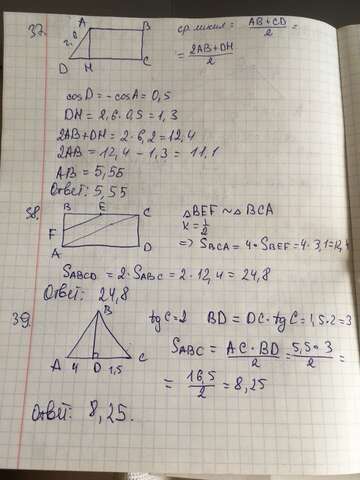 37.
A B
2,6
D H C
ср. линия = AB+CD/2 =
= 2AB+DH/2
cosD = -cosA = 0,5
DH = 2,6·0,5 = 1,3
2AB+DH = 2·6,2 = 12,4
2AB = 12,4 - 1,3 = 11,1
AB = 5,55
Ответ: 5,55
38.
B E C
F
A D
△BEF ~ △BCA
K = 1/2
=> S_BCA = 4·S_BEF = 4·3,1 = 12,4
S_ABCD = 2·S_ABC = 2·12,4 = 24,8
Ответ: 24,8
39.
B
A 4 D 1,5 C
tgC = 2 BD = DC·tgC = 1,5·2 = 3
S_ABC = AC·BD/2 = 5,5·3/2 =
= 16,5/2 = 8,25
Ответ: 8,25.